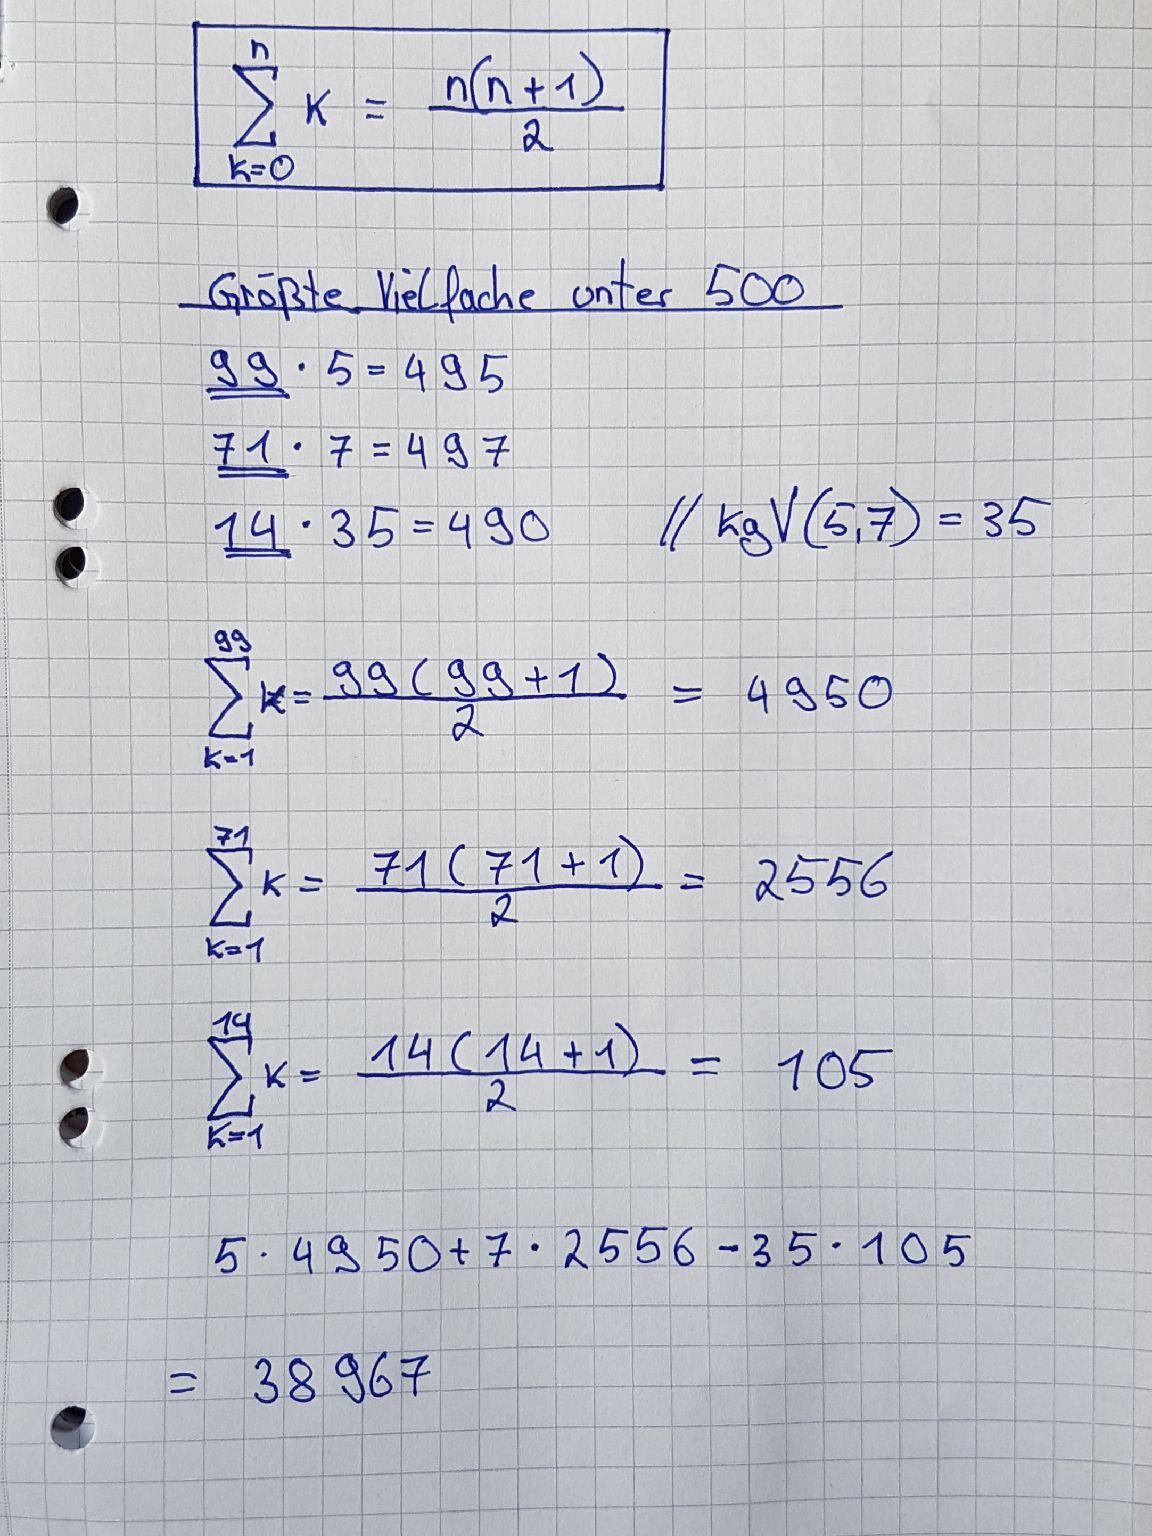 n
∑ K = n(n+1)/2
k=0
Größte Vielfache unter 500
99 · 5 = 495
71 · 7 = 497
14 · 35 = 490 // kgV(5,7) = 35
99
∑ k = 99(99+1)/2 = 4950
k=1
71
∑ k = 71(71+1)/2 = 2556
k=1
14
∑ k = 14(14+1)/2 = 105
k=1
5 · 4950 + 7 · 2556 - 35 · 105
= 38967